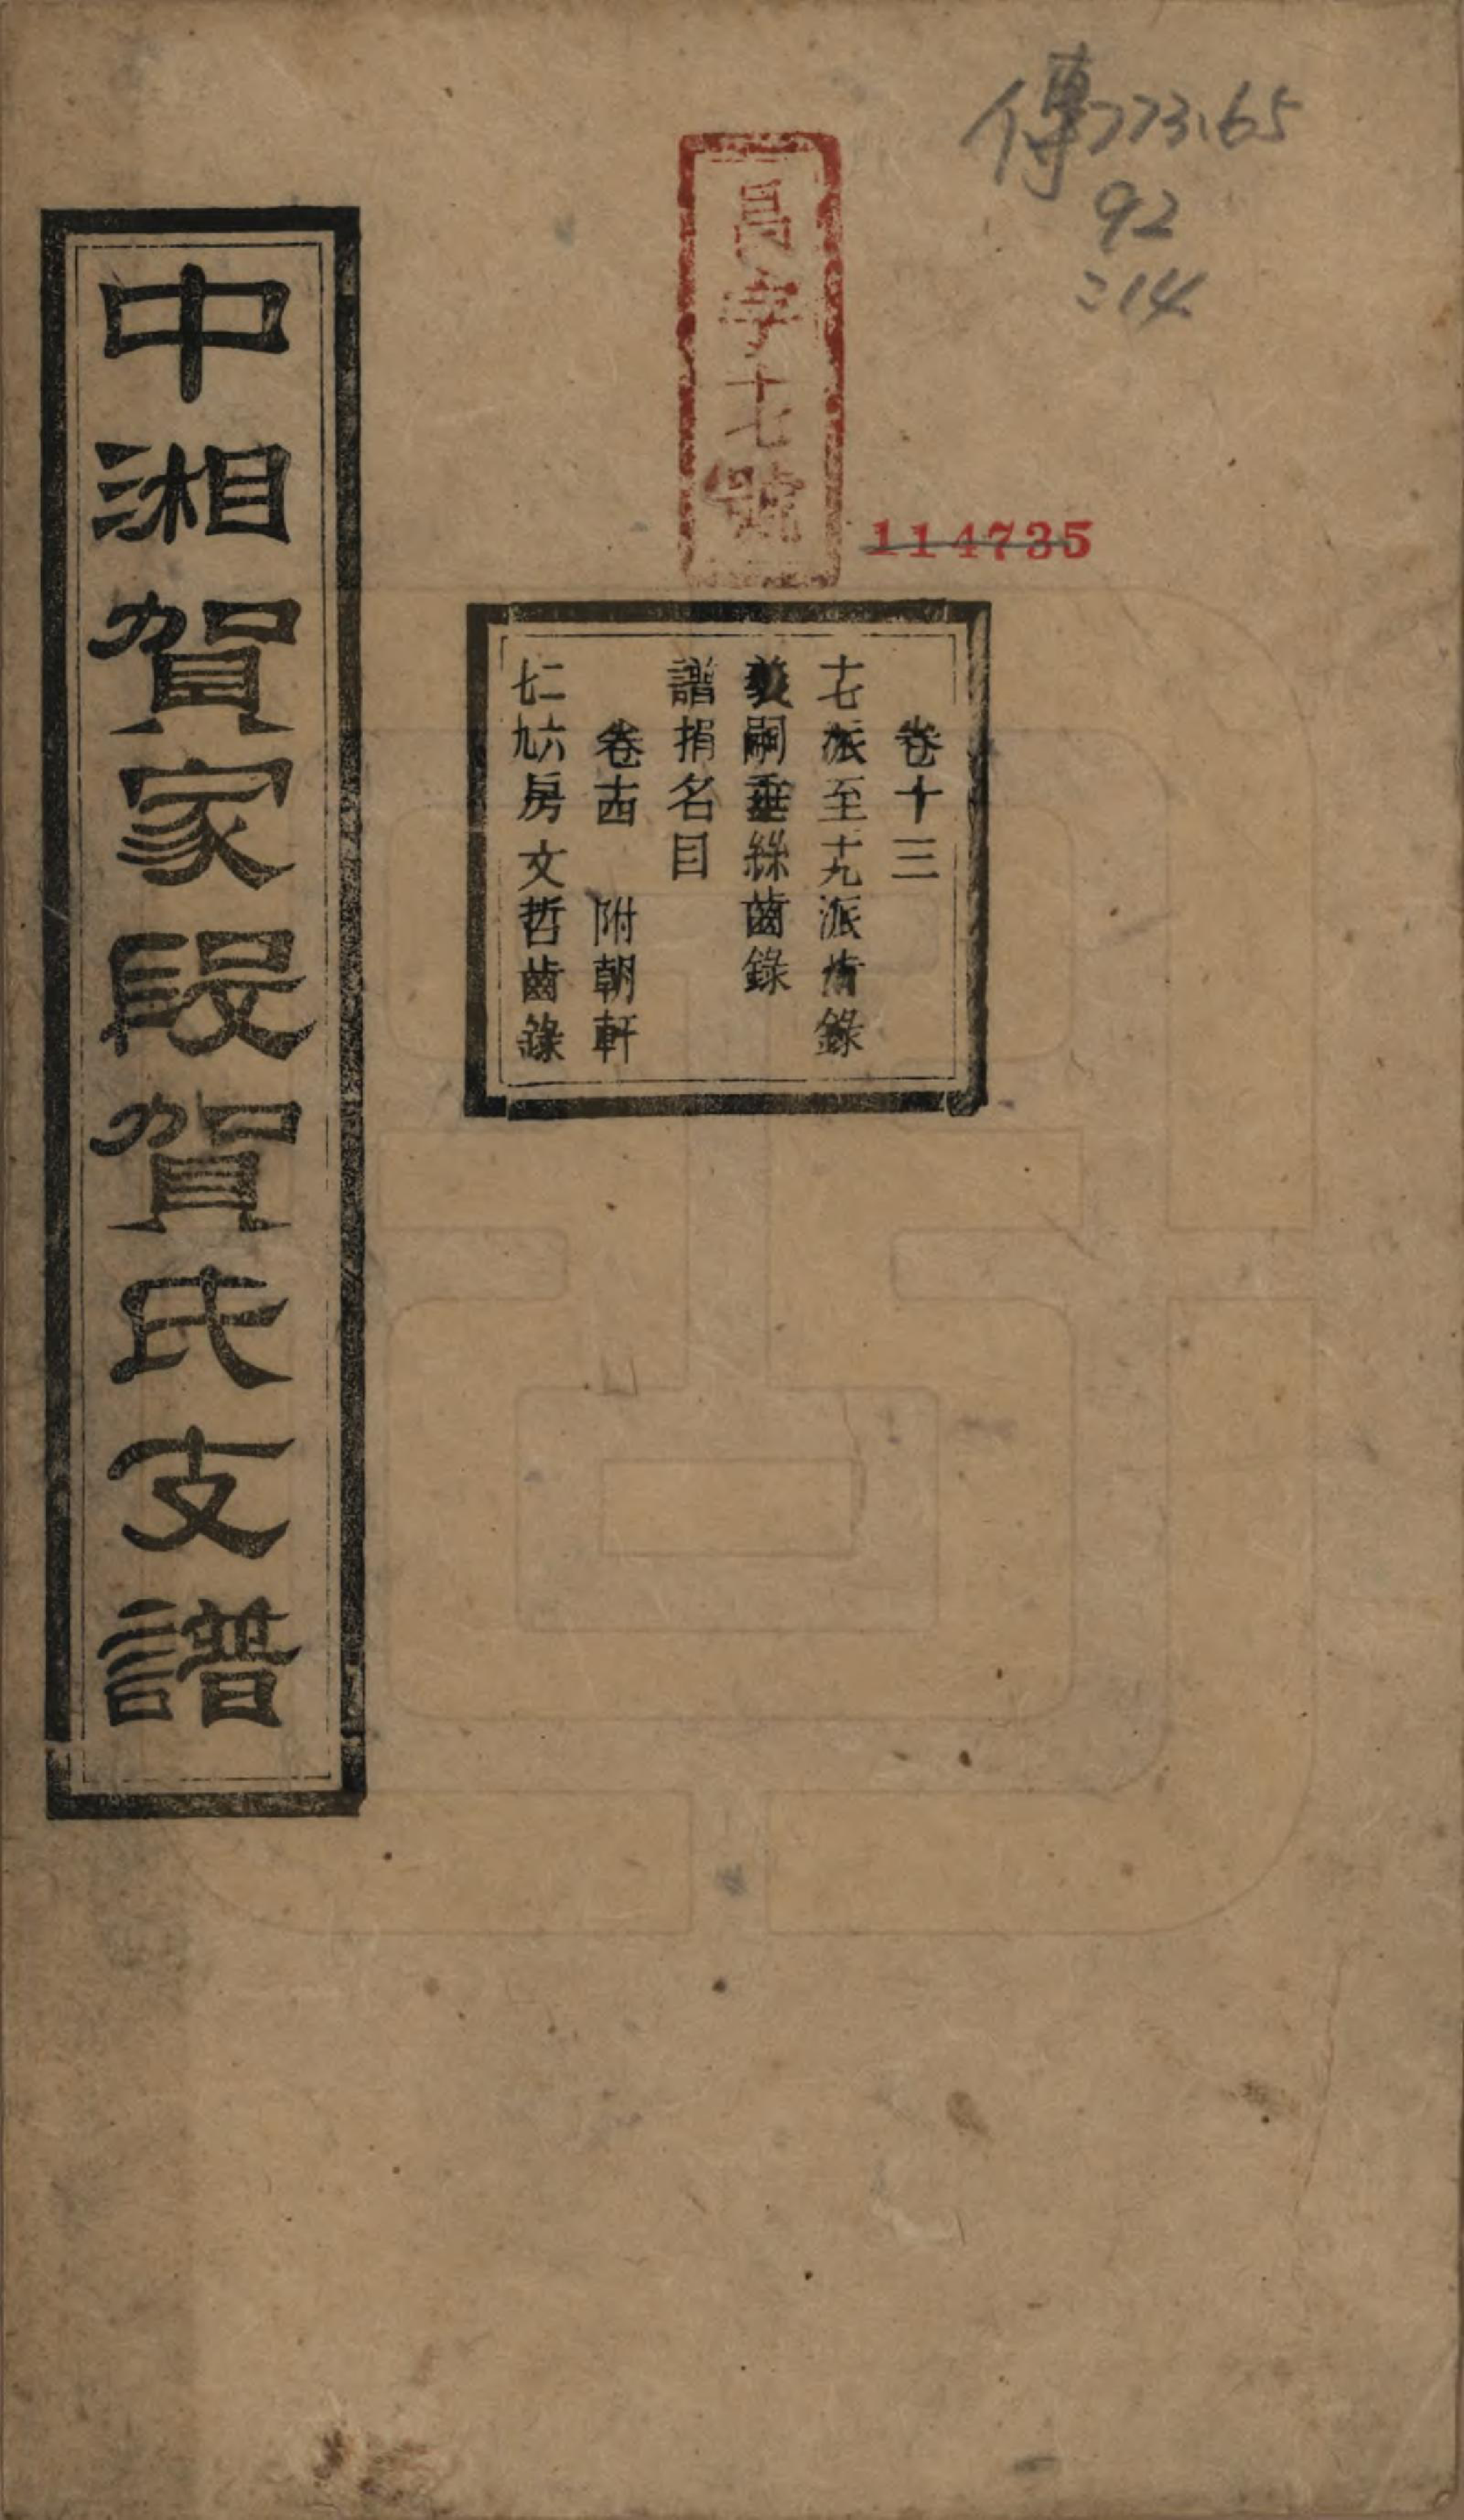 傳773.65
92
:14
昌字十七號
114735
卷十三
十七派至十九派齒錄
義嗣垂絲齒錄
譜捐名目
卷十四 附朝軒
二六七九房文哲齒錄
中湘賀家段賀氏支譜